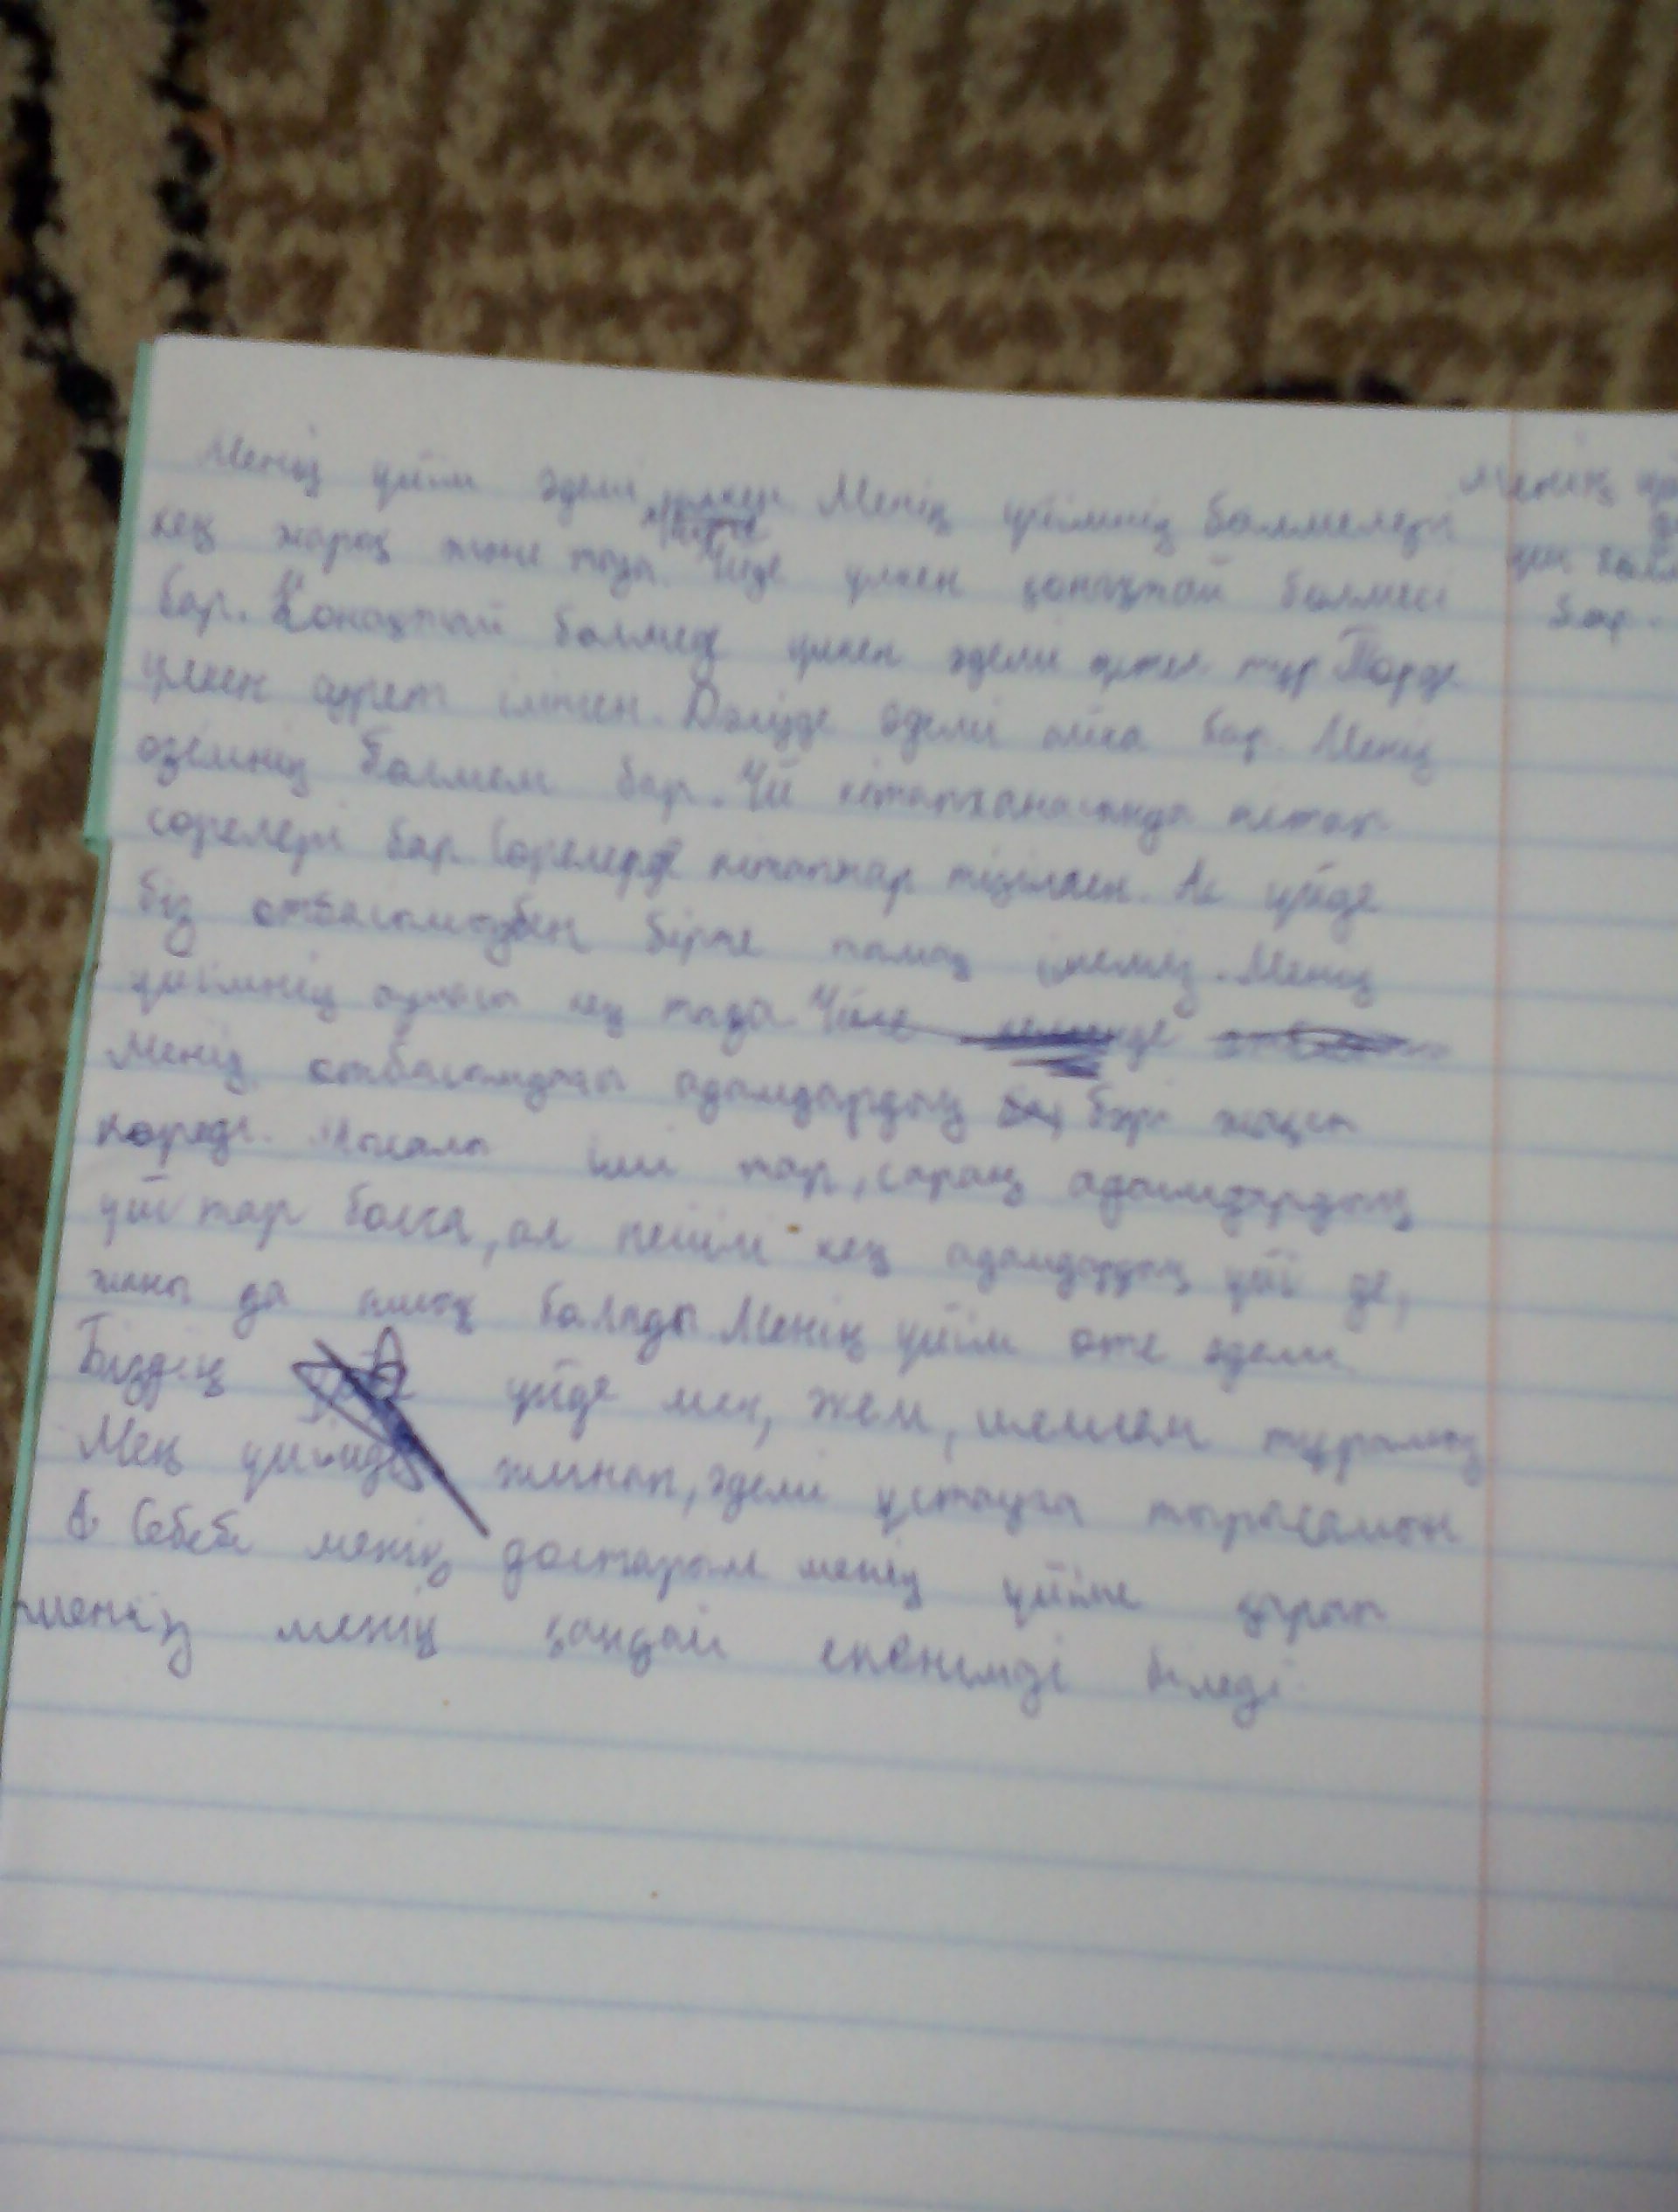 Менің үйім әдемі үлкен Менің үйімнің бөлмелері
кең жарық және таза Үйде үлкен қонақтай бөлмесі
бар. Қонақтай бөлмеде үлкен әдемі тұр Төрде
үлкен сурет ілінген. Дәлізде әдемі айна бар. Менің
өзімнің бөлмем бар. Үй кітапханасында кітап
сөрелері бар Сөрелерде кітаптар тізілген. Ас үйде
біз отбасымызбен бірге тамақ ішеміз. Менің
үйімнің ауласы кең таза. Үйге
Менің отбасымдағы адамдардың бәрі жақсы
көреді. Мысалы іші тар, сараң адамдардың
үйі тар болса, ал пейілі кең адамдардың үйі де,
жаны да ашық болады Менің үйім өте әдемі.
Біздің үйде мен, әкем, шешем тұрамыз
Мен үйімді жинап, әдемі ұстауға тырысамын
Себебі менің достарым менің үйіме қарап
менің менің қандай екенімді біледі.
Менің
үш
бар.